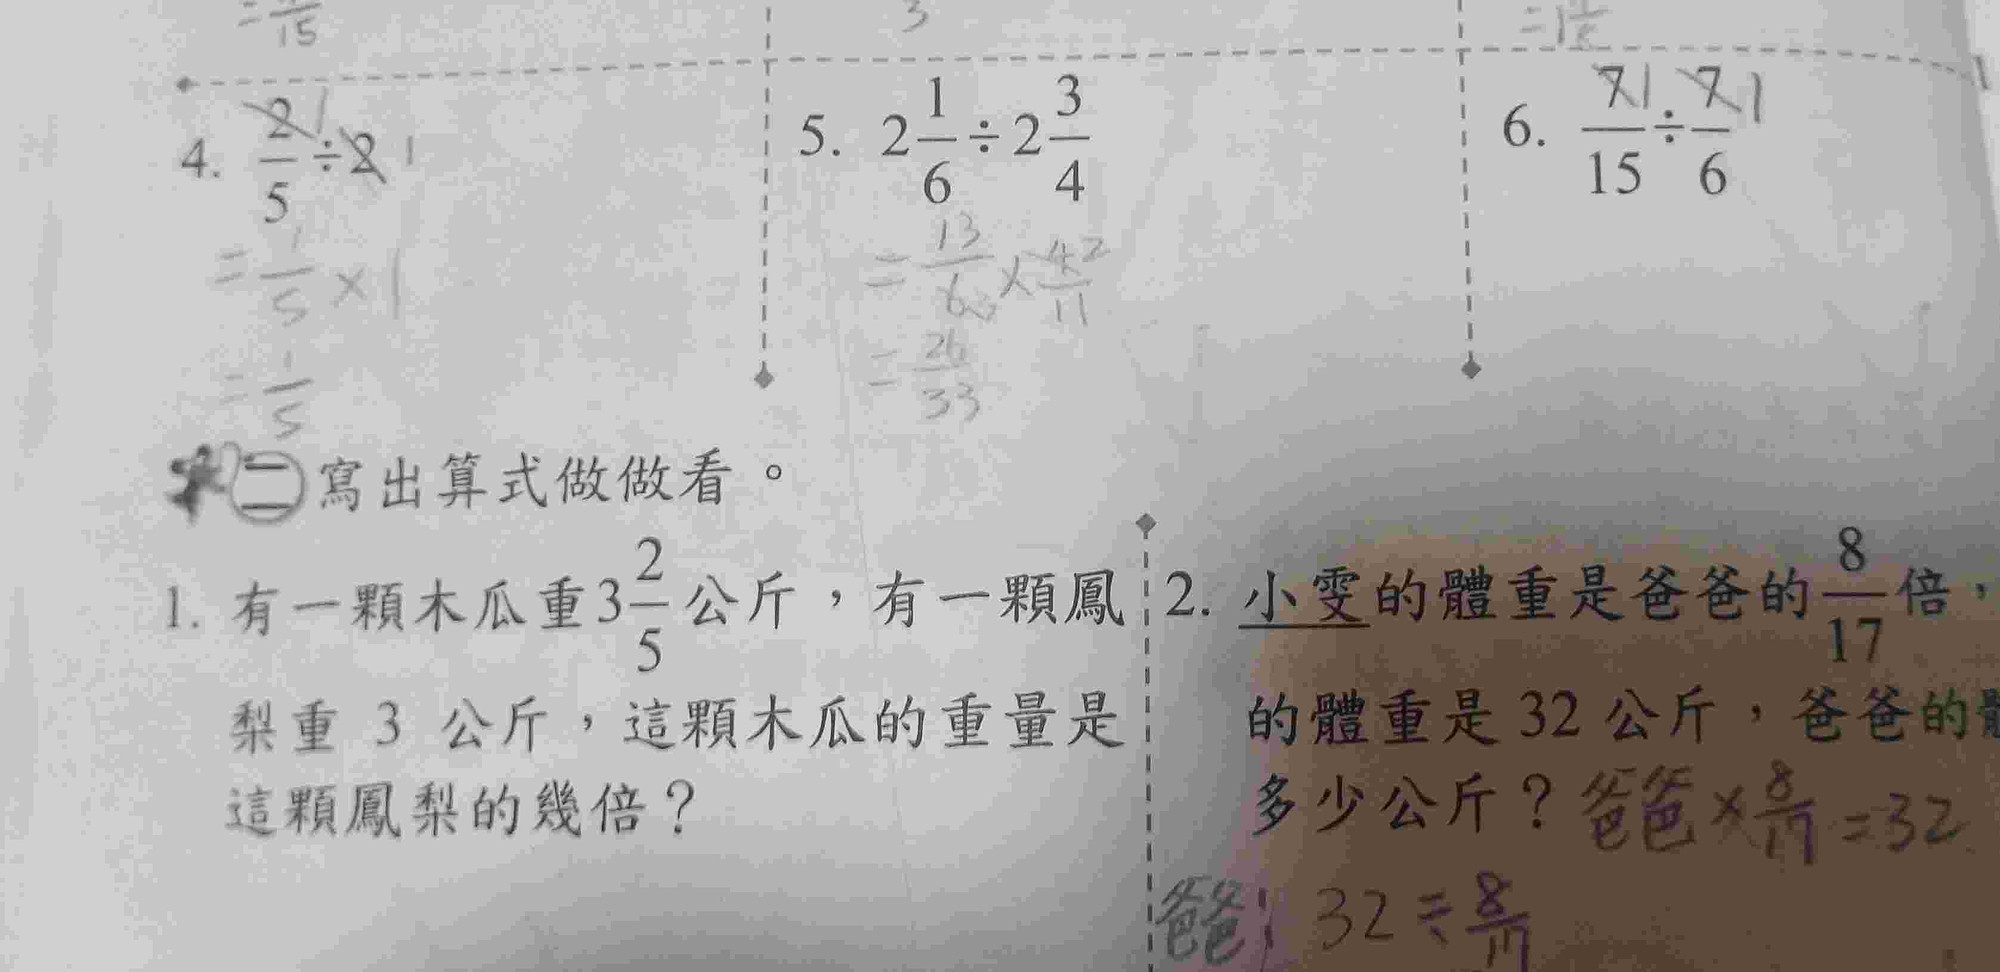 15
3
4. 2/5 ÷ 2 1 1
5. 2 1/6 ÷ 2 3/4
6. 7/15 ÷ 7/6 1 1
= 1/5 × 1
= 1/5
= 13/6 3 × 4 2/11
= 26/33
二 寫出算式做做看。
1. 有一顆木瓜重3 2/5 公斤，有一顆鳳
梨重 3 公斤，這顆木瓜的重量是
這顆鳳梨的幾倍？
2. 小雯的體重是爸爸的 8/17 倍，
的體重是 32 公斤，爸爸的
多少公斤？爸爸 × 8/17 = 32
爸爸: 32 ÷ 8/17